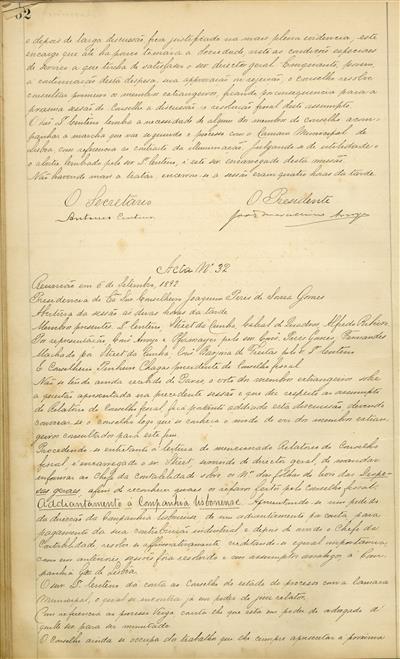 32
e depois de larga discussão, fica justificado na mais plena evidencia, este
encargo que de ha pouco tomára a Sociedade, visto as condições especiaes
de serviço a que tinha de satisfazer o seu director geral. Comquanto, porem,
a continuação desta despesa, sua approvação ou rejeição, o conselho resolve
consultar primeiro os membros extrangeiros, ficando por consequencia para a
proxima sessão do Conselho a discussão e resolução final deste assumpto.
O Snr. Dr. Centeno lembra a necessidade de algum dos membros do conselho acom-
panhar a marcha que vae seguindo o processo com a Camara Municipal de
Lisboa com referencia ao contracto da illuminação, julgando-se de utilidade
o alvitre lembrado pelo snr Dr. Centeno, é este snr encarregado desta missão.
Não havendo mais a tratar, encerrou-se a sessão eram quatro horas da tarde.
O Secretario O Presidente
Antonio Centeno
Acta Nº 32
Reunião em 6 de Setembro, 1892
Presidencia do Exmo Snr. Conselheiro Joaquim Peres de Souza Gomes
Abertura da sessão ás duas horas da tarde
Membros presentes: Dr. Centeno, Street da Cunha, Cabral de Quadros, Alfredo Ribeiro
Por representação, Cons. Arroyo e
Machado por Street da Cunha, Cons. Barjona de Freitas pelo snr. Dr. Centeno
O Conselheiro Pinheiro Chagas presidente do Conselho fiscal
Não se tendo ainda recebido de Paris, o voto dos membros extrangeiros sobre
a questão apresentada na precedente sessão e que diz respeito ao assumpto
do Relatorio do Conselho fiscal, fica portanto addiada esta discussão devendo
convocar-se o conselho logo que se conheça o modo de ver dos membros extran-
geiros consultados para este fim.
Procedendo-se entretanto á leitura do mencionado Relatorio do Conselho
fiscal, é encarregado o snr Street, servindo de director geral, de mandar
informar ao Chefe da contabilidade sobre os Nos. das folhas do livro das Despe-
zas geraes, afim de reconhecer quaes os reparos feitos pelo Conselho fiscal.
Addiantamento á Companhia Lisbonense Apresentando-se um pedido
da direcção da Companhia Lisbonense, de um addiantamento por conta, para
pagamento da sua contribuição industrial e depois de ouvido o Chefe da
Contabilidade resolve-se affirmativamente creditando-se egual importancia,
como em anteriores epocas fora resolvido e com assumptos analogos, á Com-
panhia Gaz de Lisboa.
O snr Dr. Centeno dá conta ao Conselho do estado do processo com a Camara
Municipal, o qual se encontra já em poder do juiz relator.
Com referencia ao processo Veiga consta-lhe que está em poder do advogado d'
elle snr para ser minutado.
O Conselho ainda se occupa do trabalho que lhe cumpre apresentar á proxima